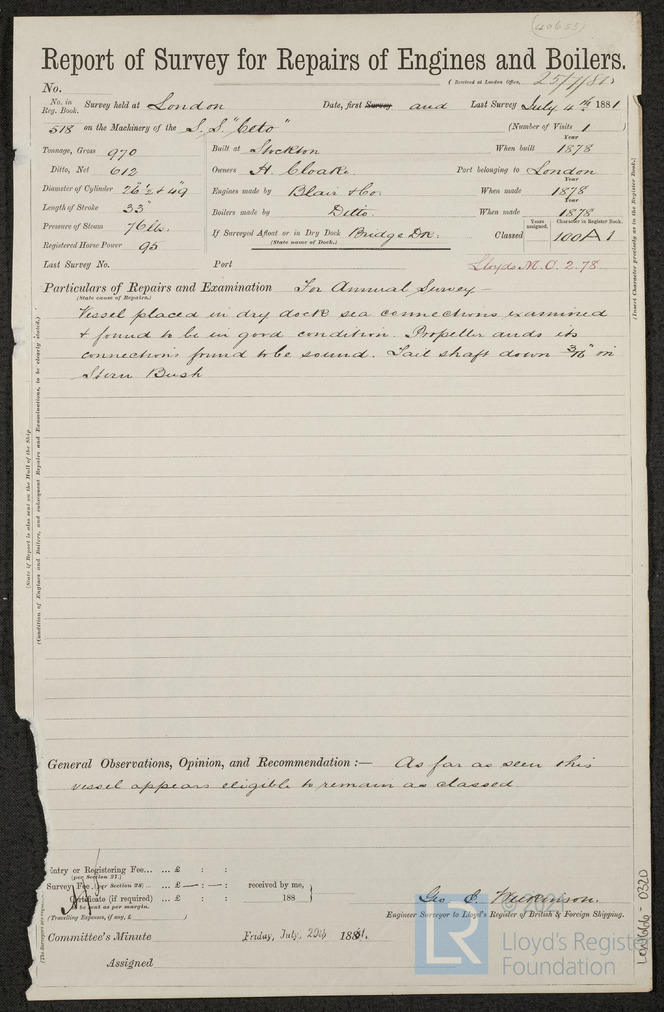 (40655)
Report of Survey for Repairs of Engines and Boilers.
(Received at London Office, 25/7/81)
No.
No. in Reg. Book. Survey held at London Date, first Survey and Last Survey July 4th 1881
518 on the Machinery of the S.S. "Ceto" (Number of Visits 1 )
Tonnage, Gross 970 Built at Stockton When built 1878
Ditto, Net 612 Owners H. Cloake Port belonging to London
Diameter of Cylinder 26½" & 49" Engines made by Blair & Co. When made Year 1878
Length of Stroke 33" Boilers made by Ditto. When made Year 1878
Pressure of Steam 76 lbs. If Surveyed Afloat or in Dry Dock Bridge Dk. Classed Years assigned. Character in Register Book. 100A1
(State name of Dock.)
Registered Horse Power 95
Last Survey No. Port Lloyds M.C. 2.78
Particulars of Repairs and Examination For Annual Survey —
(State cause of Repairs.)
Vessel placed in dry dock sea connections examined
& found to be in good condition. Propeller and its
connections found to be sound. Tail shaft down 3/16" on
Stern Bush
General Observations, Opinion, and Recommendation :— As far as seen this
vessel appears eligible to remain as classed.
Entry or Registering Fee... ... £ : :
(per Section 27.)
Survey Fee (per Section 28) ... ... £ — : — : received by me,
Certificate (if required) ... £ : : 188
To be sent as per margin.
(Travelling Expenses, if any, £ )
Geo. C. Wilkinson.
Engineer Surveyor to Lloyd's Register of British & Foreign Shipping.
Committee's Minute Friday, July, 29th 1881.
Assigned
(State if Report is also sent on the Hull of the Ship
(Condition of Engines and Boilers, and subsequent Repairs and Examinations, to be clearly stated.)
(Insert Character precisely as in the Register Book.)
LON666-0320
© 2021
LR
Lloyd's Register
Foundation